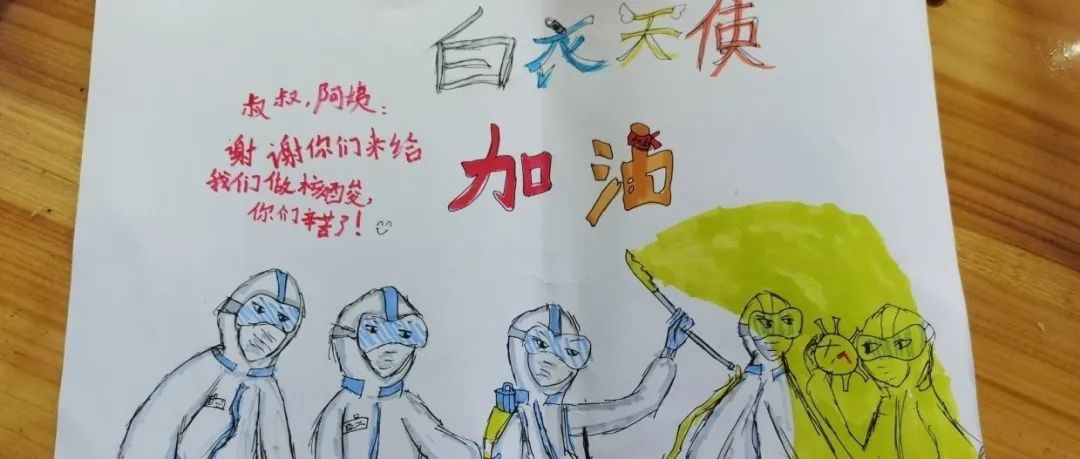 白衣天使
加油
叔叔,阿姨:
谢谢你们来给
我们做核酸,
你们辛苦了!